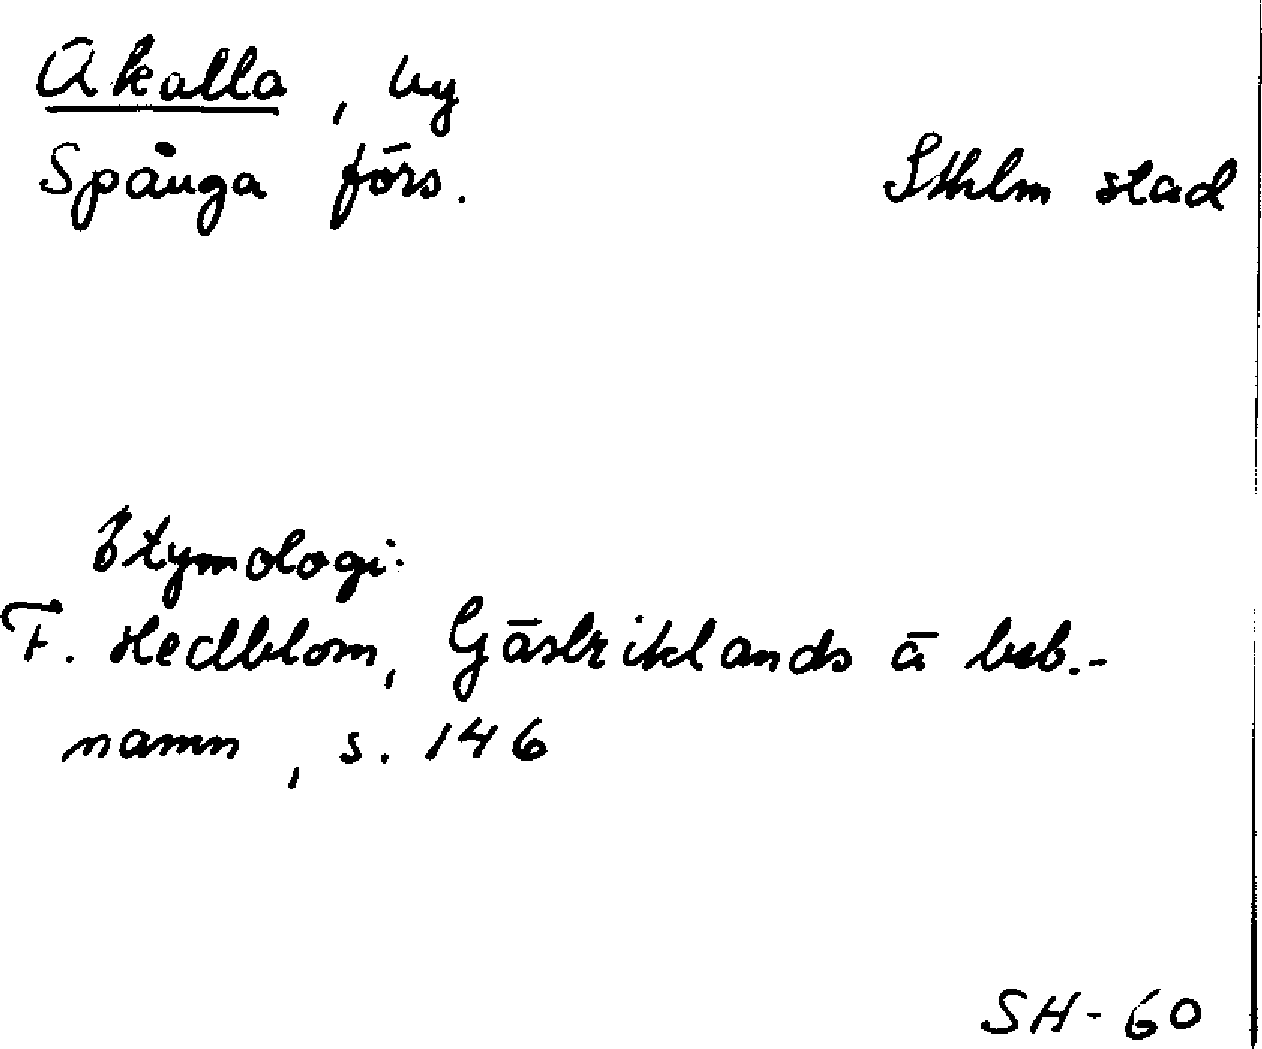 Äkalla, by
Spånga förs. Sthlm stad
Etymologi:
F. Hedblom, Gästriklands ä beb.-
namn, s. 146
SH-60